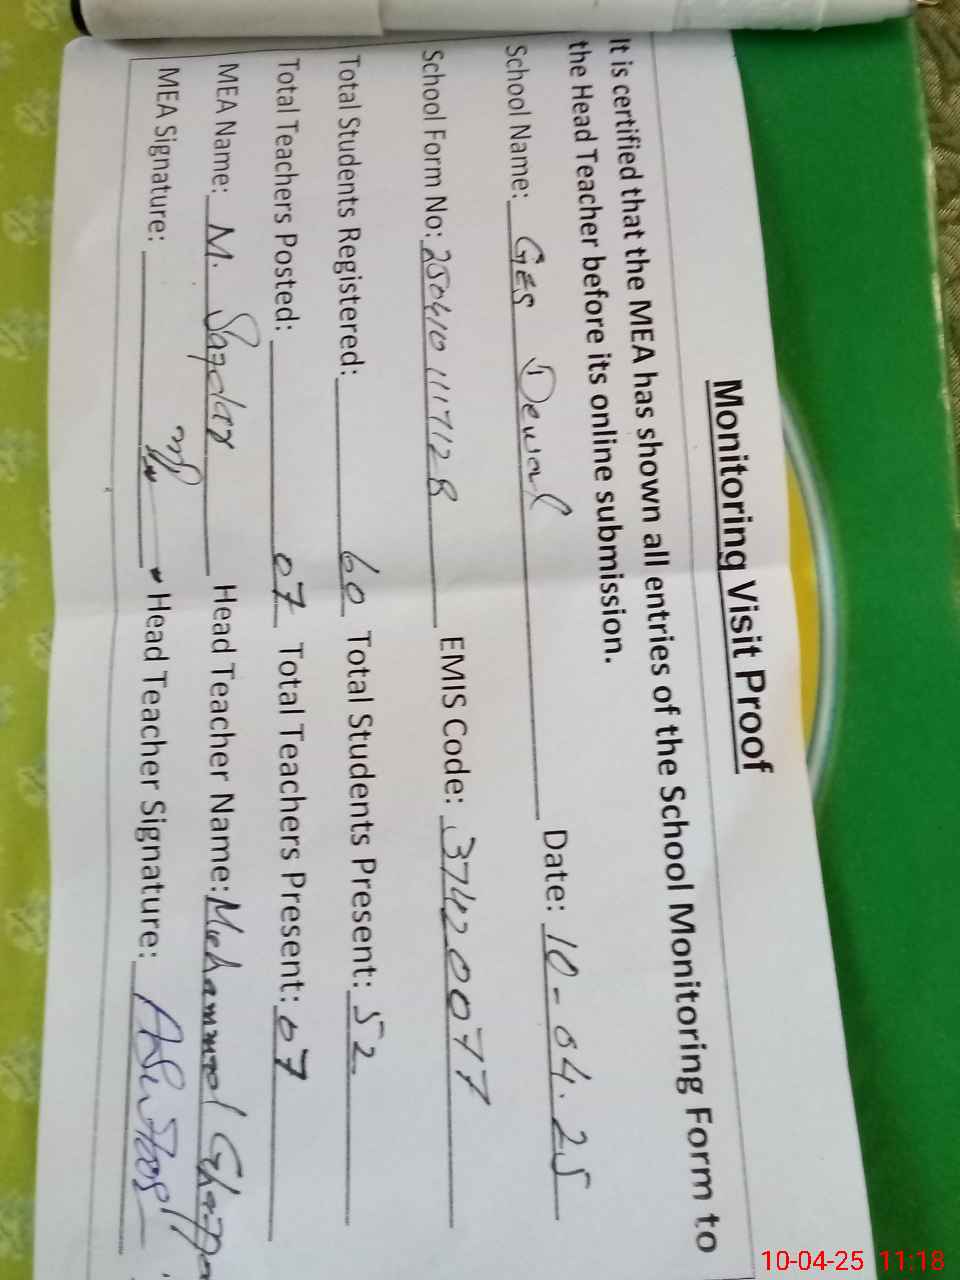 Monitoring Visit Proof
It is certified that the MEA has shown all entries of the School Monitoring Form to
the Head Teacher before its online submission.
School Name: GES Dewal Date: 10-04.25
School Form No: 2504101117128 EMIS Code: 37420077
Total Students Registered: 60 Total Students Present: 52
Total Teachers Posted: 07 Total Teachers Present: 07
MEA Name: M. Safdar Head Teacher Name: Muhammad
MEA Signature: Head Teacher Signature:
10-04-25 11:18